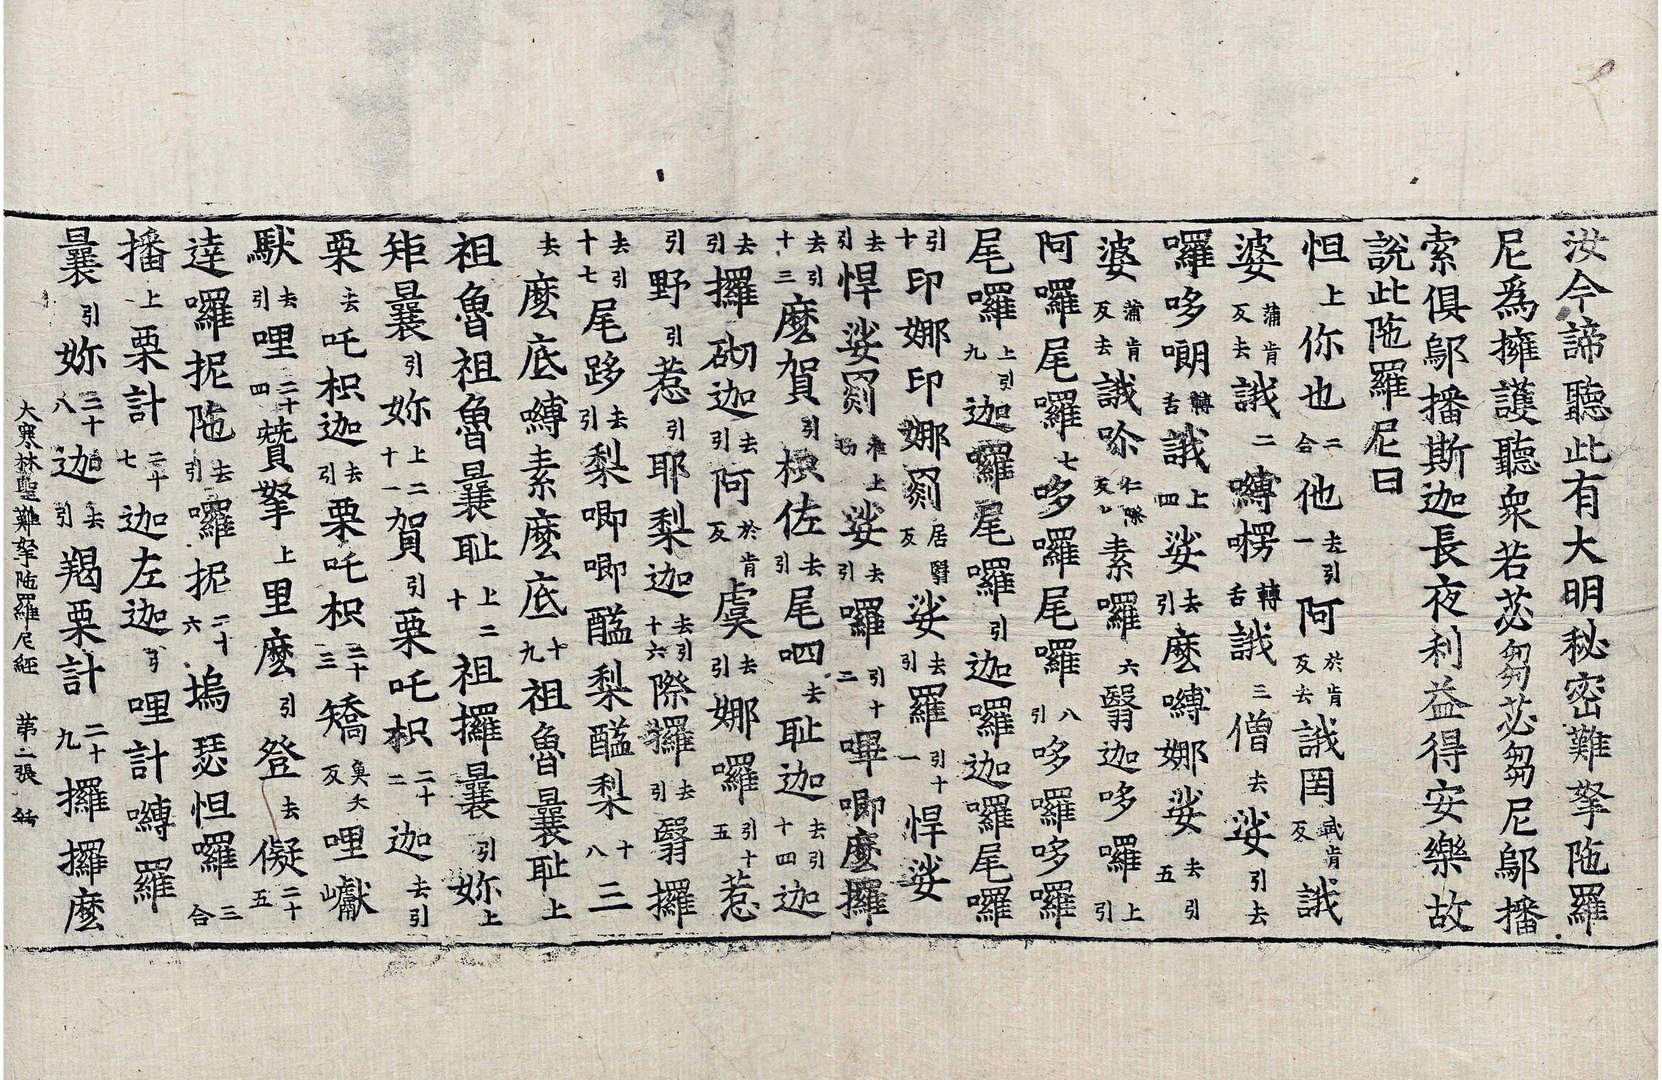 汝今諦聽此有大明秘密難拏陁羅
尼爲擁護聽衆若苾芻苾芻尼鄔播
索俱鄔播斯迦長夜利益得安樂故
說此陁羅尼曰
怛上你也二合他去引一阿於肯反去誐罔武肯反誐
婆蒲肯反去誐二嚩楞轉舌誐三僧去娑引去
囉哆嘲轉舌誐上四娑去引麽嚩娜娑去引五
婆蒲肯反去誐唋素囉六翳迦哆囉上引
阿囉尾囉七哆囉尾囉八引哆囉哆囉
尾囉上引九迦囉尾囉引迦囉迦囉尾囉
引十印娜印娜罽居翳反娑去引羅引十一悍娑
去引悍娑罽上娑去引囉引十二嗶唧麽攞
去引十三麽賀引枳佐去引尾呬去耻迦去引十四迦
去引攞砌迦去引阿於肯反虞去引娜囉引十五惹
引野引惹引耶梨迦去引十六際攞去引翳攞
去引十七尾跢去引梨唧唧醯梨醯梨十八三
去麽底嚩素麽底十九祖魯曩耻上
祖魯祖魯曩耻上二十祖攞曩引妳上
矩曩引妳上二十一賀引栗吒枳二十二迦去引
栗去吒枳迦去引栗吒枳二十三矯魚夭反哩巘
馱去引哩二十四贊拏上里麽引登去儗二十五
達囉抳陁去引囉抳二十六塢瑟怛囉三合
播上栗計二十七迦左迦引哩計嚩羅
曩引妳二十八迦去引羯栗計二十九攞攞麽
大寒林聖難拏陁羅尼經 第二張